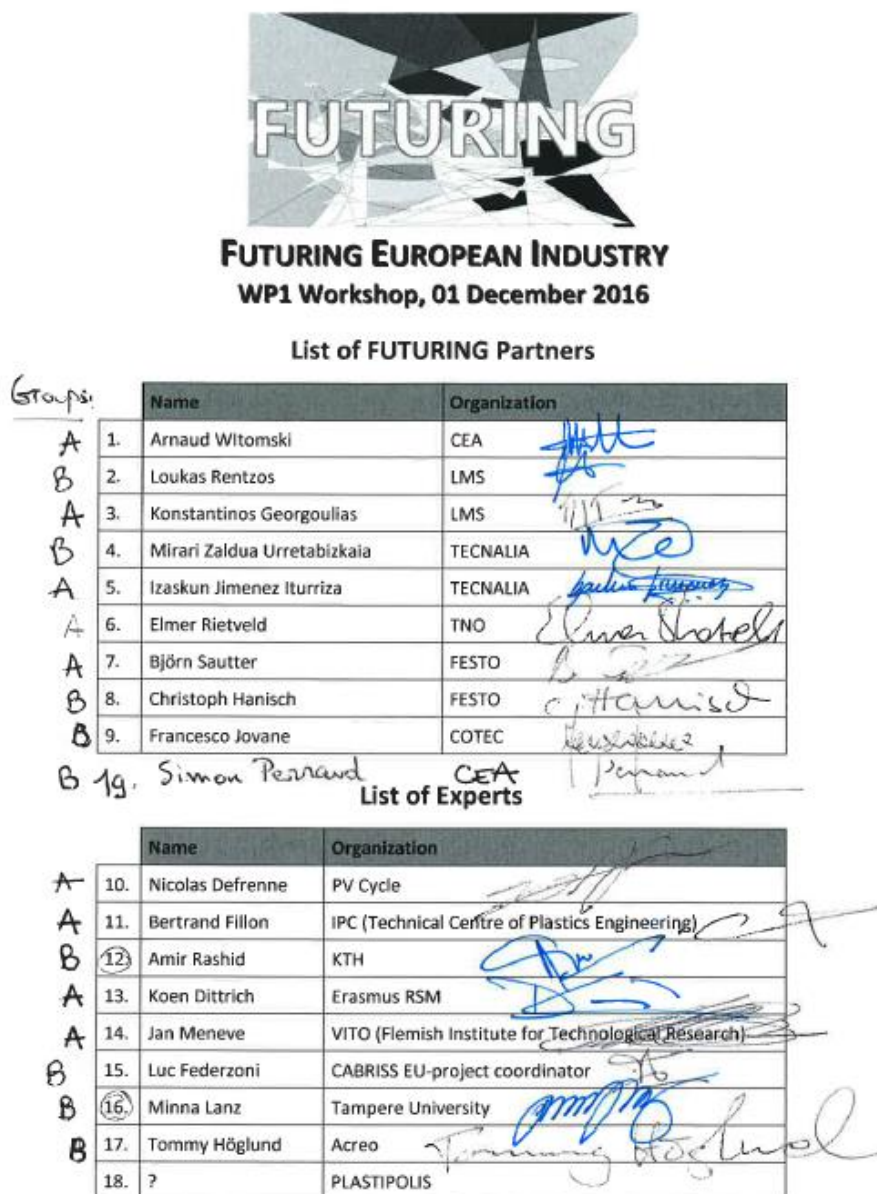 FUTURING
FUTURING EUROPEAN INDUSTRY
WP1 Workshop, 01 December 2016
List of FUTURING Partners
Groups:
Name Organization
A 1. Arnaud WItomski CEA
B 2. Loukas Rentzos LMS
A 3. Konstantinos Georgoulias LMS
B 4. Mirari Zaldua Urretabizkaia TECNALIA
A 5. Izaskun Jimenez Iturriza TECNALIA
A 6. Elmer Rietveld TNO
A 7. Björn Sautter FESTO
B 8. Christoph Hanisch FESTO C. Hanisch
B 9. Francesco Jovane COTEC
B 19. Simon Perraud CEA Perraud
List of Experts
Name Organization
A 10. Nicolas Defrenne PV Cycle
A 11. Bertrand Fillon IPC (Technical Centre of Plastics Engineering)
B 12. Amir Rashid KTH
A 13. Koen Dittrich Erasmus RSM
A 14. Jan Meneve VITO (Flemish Institute for Technological Research)
B 15. Luc Federzoni CABRISS EU-project coordinator
B 16. Minna Lanz Tampere University
B 17. Tommy Höglund Acreo Tommy Höglund
18. ? PLASTIPOLIS